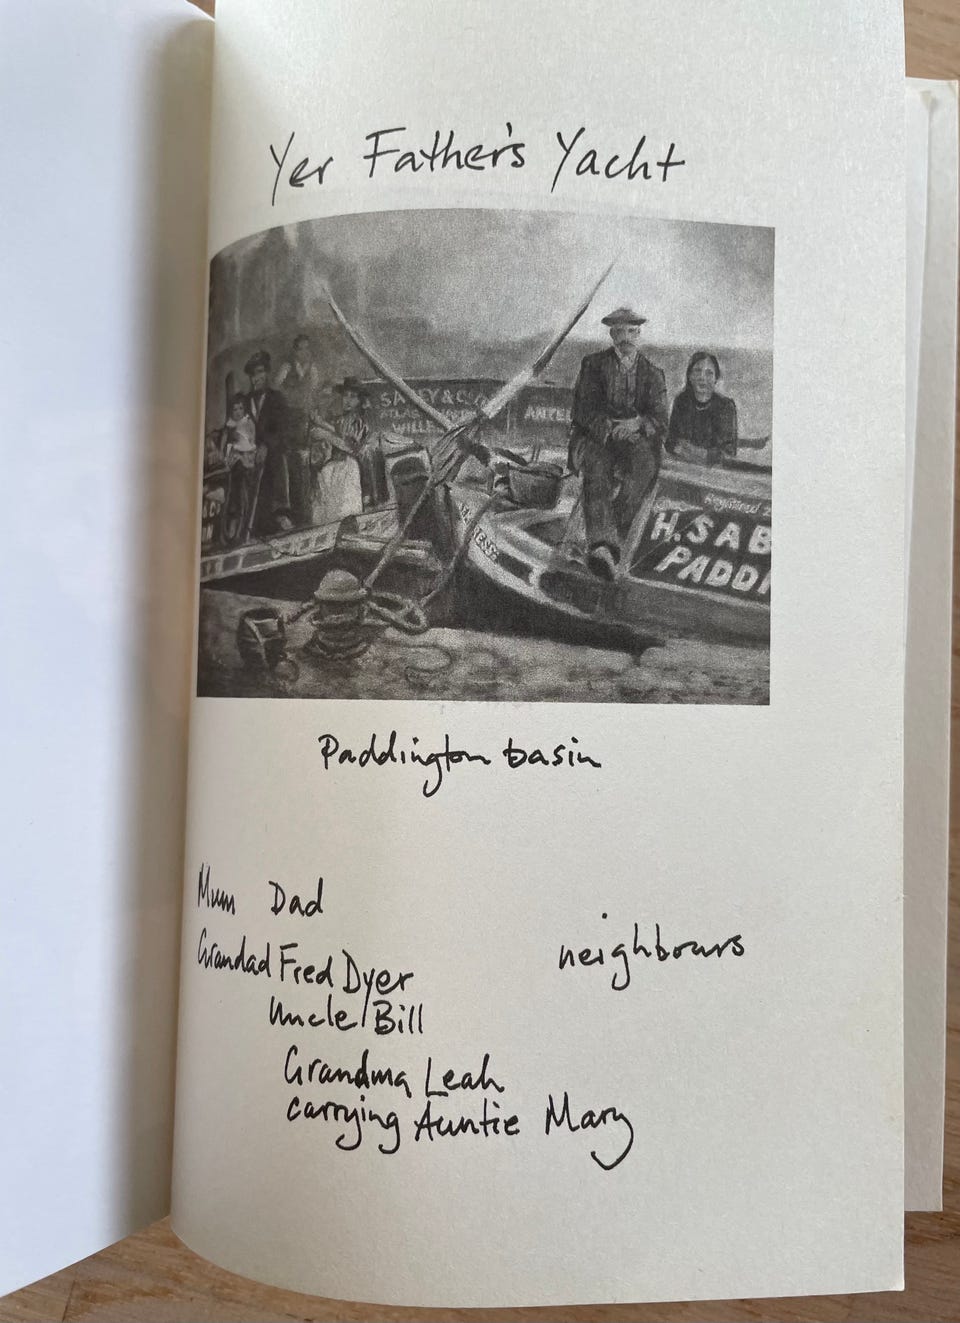 Yer Father's Yacht
WILLE
Registered
H. SAB
PADDI
Paddington basin
Mum Dad
Grandad Fred Dyer
neighbours
Uncle Bill
Grandma Leah
carrying Auntie Mary